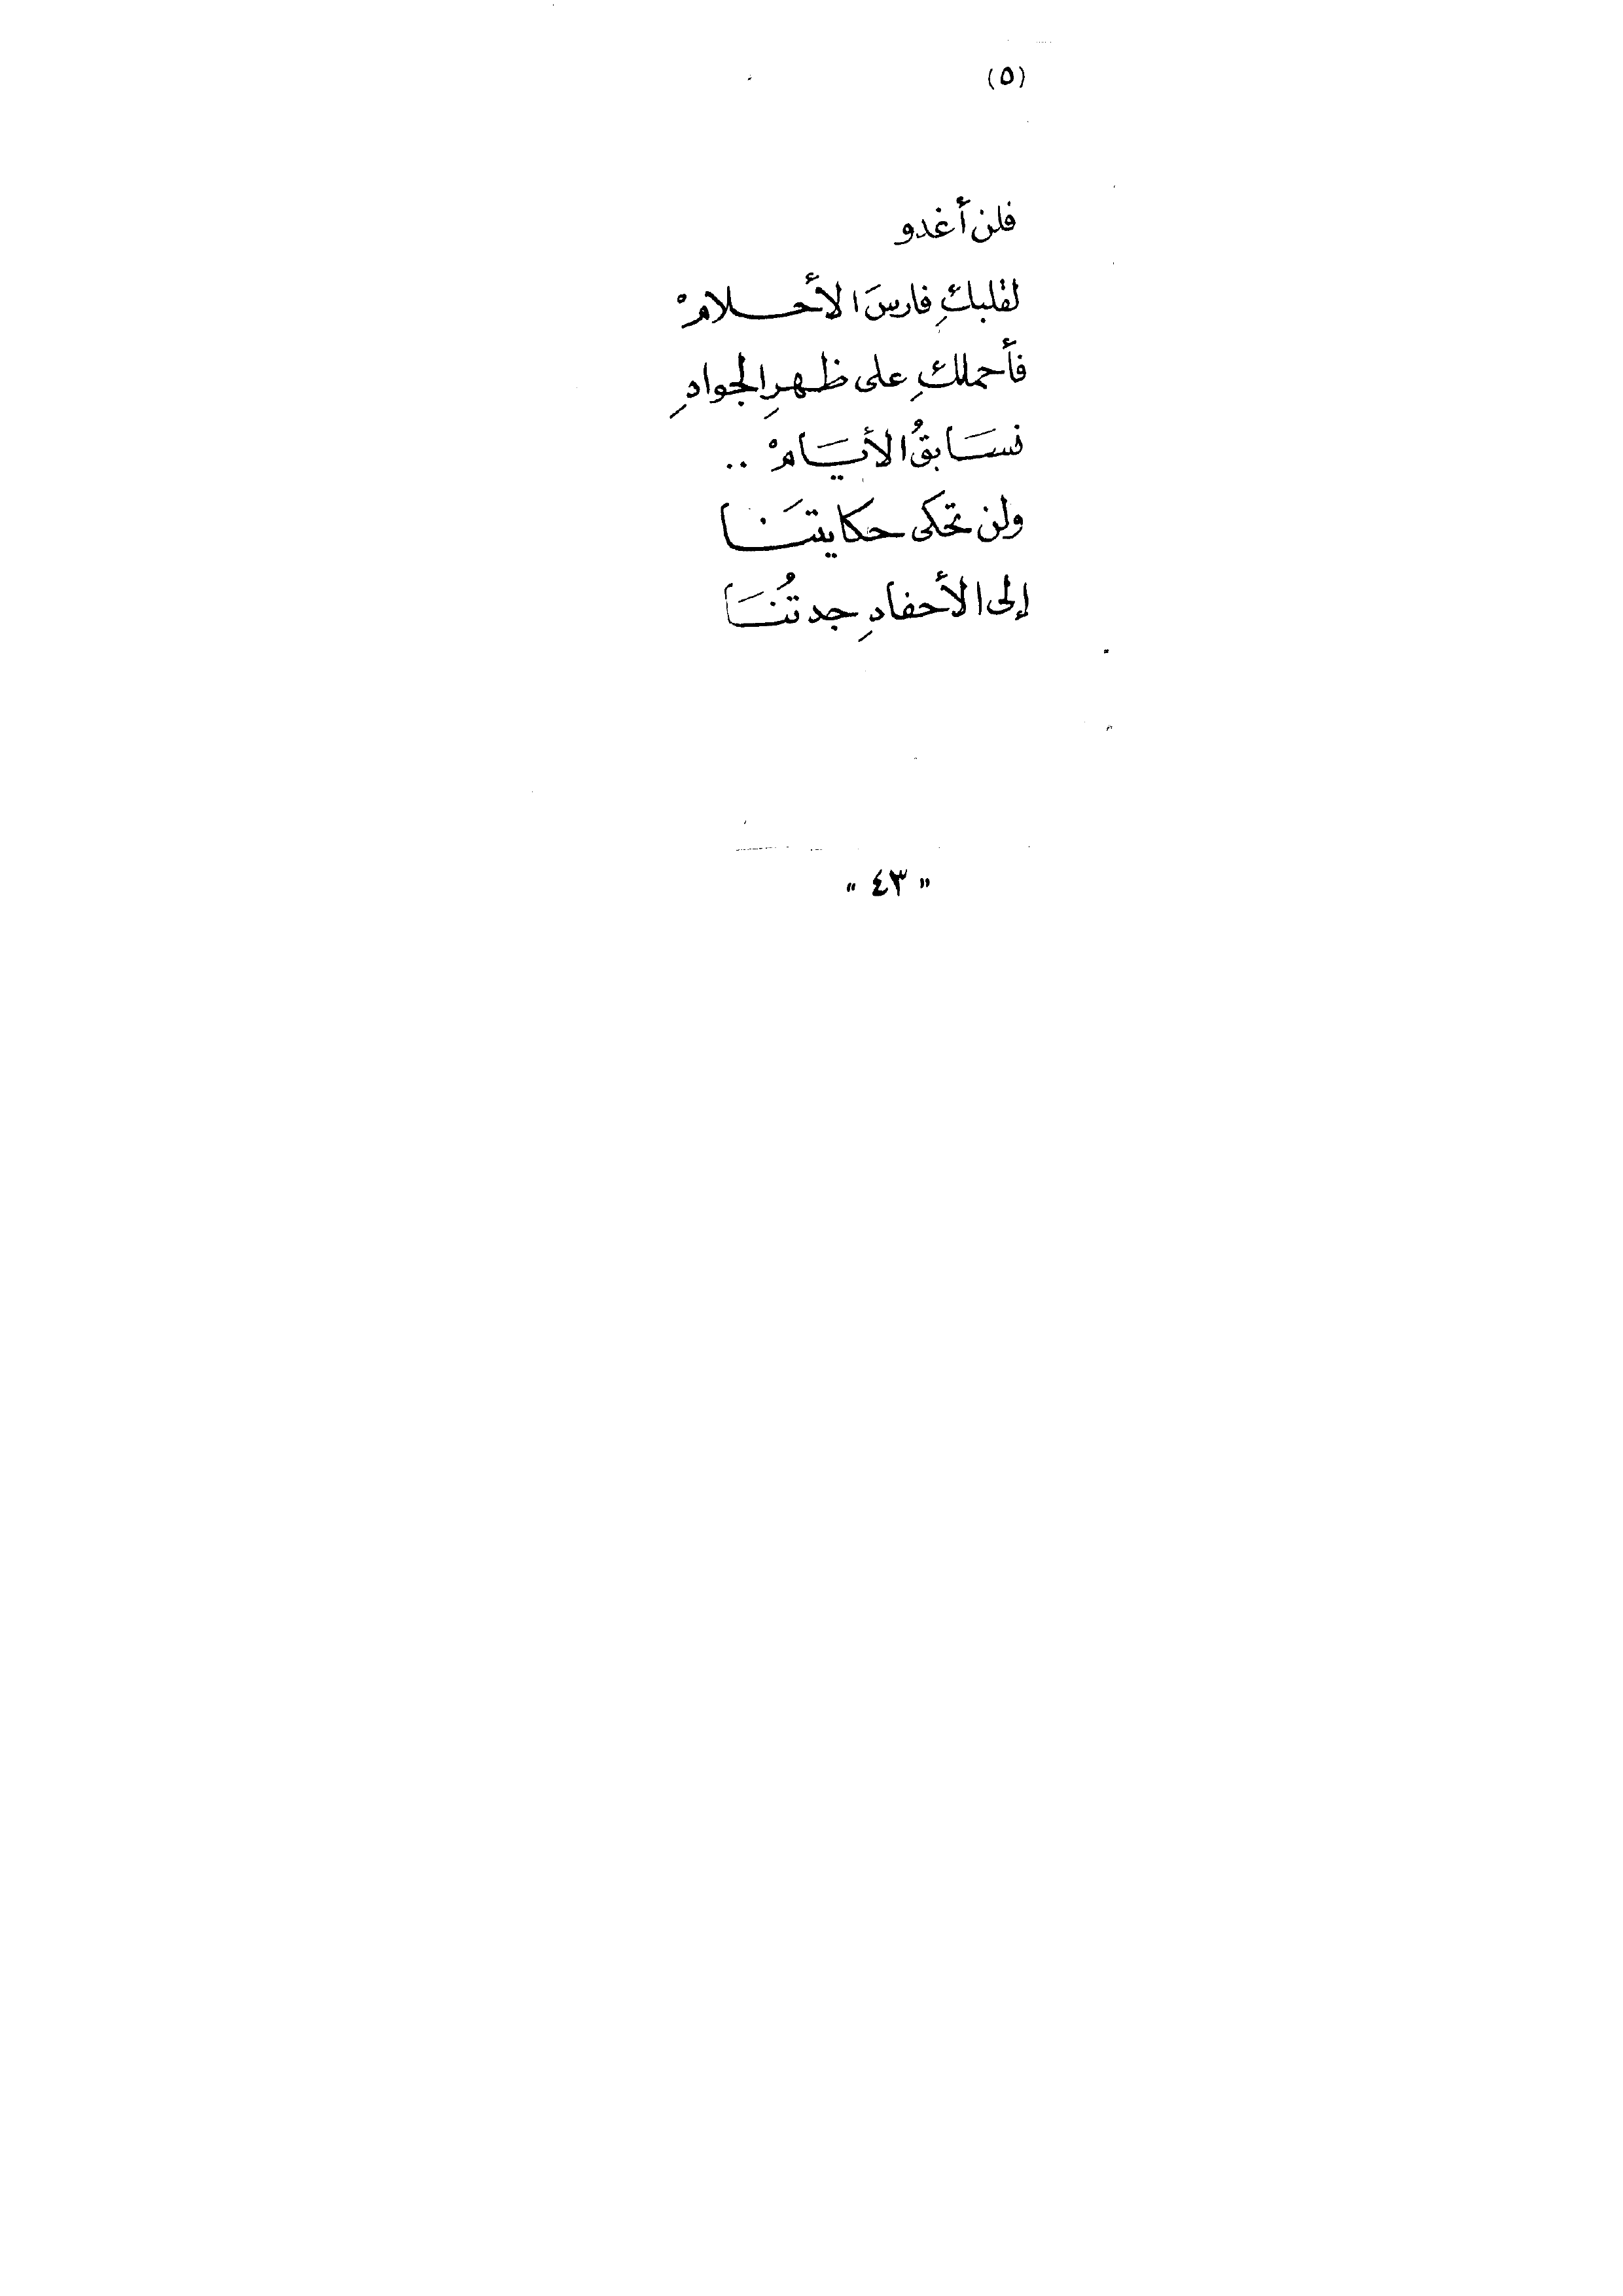 (٥)
فلن أغدو
لقلبكِ فارسَ الأحلامْ
فأحملكِ على ظهرِ الجوادِ
نسَابقُ الأيَامْ ..
ولن تحكى حكايتَنا
إلى الأحفادِ جدتُنَا
" ٤٣ "